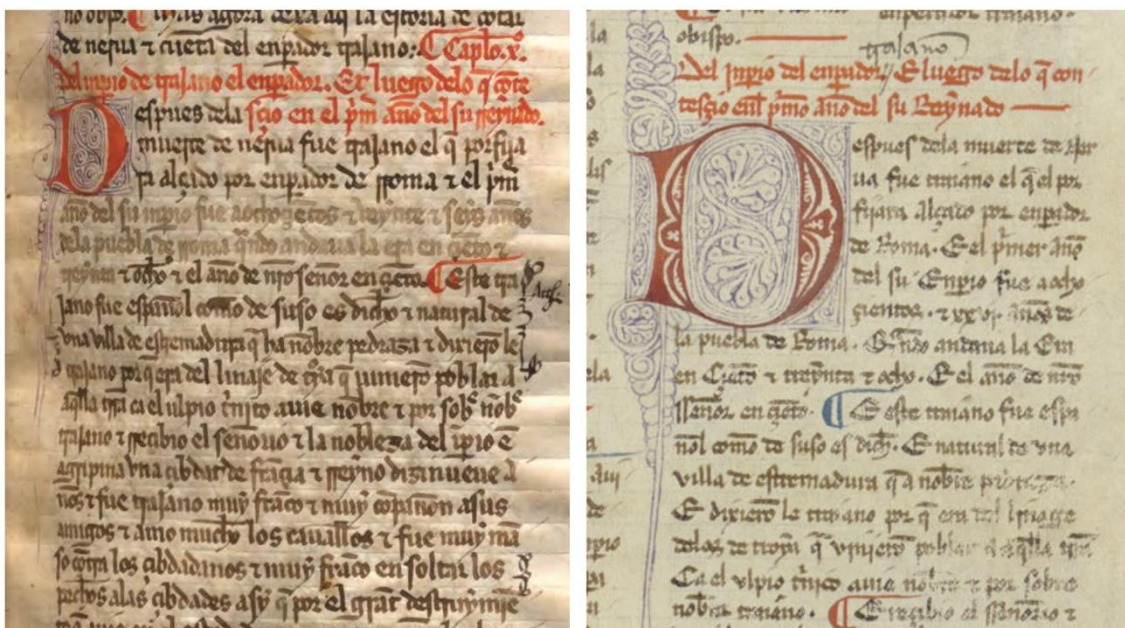 de nerua τ cueta del enpador trajano: Caplo. x.
del inpio de trajano el enpador. Et luego delo q̃ cote
espues dela sçio en el pm̃ año del su rreynado.
muerte de nerua fue trajano el q̃ porfija
ra alçado por enpador de rroma τ el pm̃
año del su inpio fue aochoçetos τ veynte τ seys años
dela puebla de rroma q̃ndo andaua la era en çieto τ
treynta τ ocho τ el año de nr̃o señor en çeto. Este tra
jano fue español como de suso es dicho τ natural de
vna villa de estremadura q̃ ha nobre pedraza τ dixierõ le
trajano por q̃ era del linaje de q̃ vinierõ poblar a
aq̃lla trr̃a ca el ulpio t̃nito auie nobre τ por sob̃ nõb̃
trajano τ rreçibio el señorio τ la nobleza del ip̃io ẽ
agripina vna çibdat de frãçia τ rreyno dizinueue a
ños τ fue trajano muy frãco τ muy cõpañon a sus
amigos τ amo mucho los cauallos τ fue muy mã
so cõtra los çibdadanos τ muy frãco en soltar los
pechos alas çibdades asy q̃ por el grãt destruymiẽ
obispo.
trajano
Del inpio del enpador. E luego delo q̃ con
tesçio enl̃ pm̃o año del su Reynado
Despues dela muerte de Ner
ua fue traiano el q̃ el por
fijara alçado por enpador
de Roma. E el pm̃er año
del su Enpio fue a ocho
çientos. τ xxvi años de
la puebla de Roma. Q̃ndo andaua la Era
en Çieto τ treynta τ ocho. E el año de nr̃o
sseñor en çeto. E este traiano fue espa
ñol como de suso es dicho. E natural de vna
villa de estremadura q̃ a nobre
E dixierõ le traiano por q̃ era del linage
delos de troya q̃ vinierõ poblar a aq̃lla trr̃a
Ca el vlpio t̃nico auie nobre τ por sobre
nobre traiano. E rreçibio el sseñorio τ